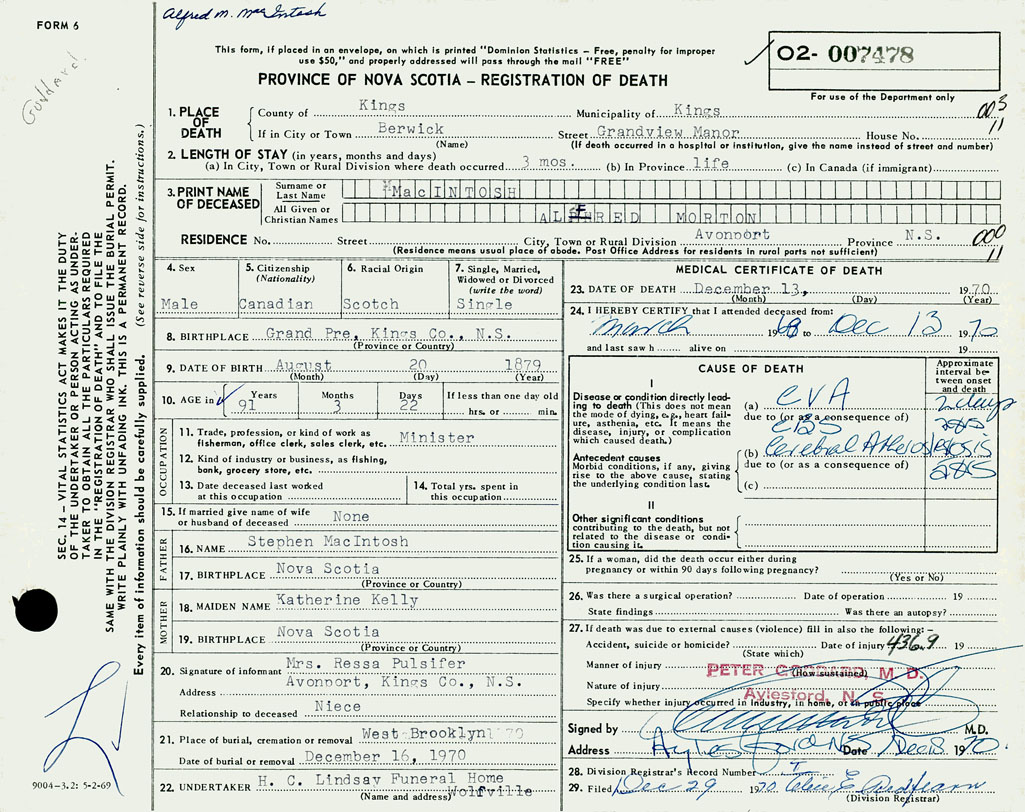 FORM 6
Alfred M. MacIntosh
Goddard
This form, if placed in an envelope, on which is printed "Dominion Statistics – Free, penalty for improper
use $50," and properly addressed will pass through the mail "FREE"
PROVINCE OF NOVA SCOTIA – REGISTRATION OF DEATH
02- 007478
For use of the Department only
003
11
1. PLACE OF DEATH
County of Kings Municipality of Kings
If in City or Town Berwick Street Grandview Manor House No.
(Name) (If death occurred in a hospital or institution, give the name instead of street and number)
2. LENGTH OF STAY (in years, months and days)
(a) In City, Town or Rural Division where death occurred 3 mos. (b) In Province life (c) In Canada (if immigrant)
3. PRINT NAME OF DECEASED
Surname or Last Name MacINTOSH
All Given or Christian Names ALFRED MORTON
RESIDENCE No. Street City, Town or Rural Division Avonport Province N.S.
(Residence means usual place of abode. Post Office Address for residents in rural parts not sufficient)
000
11
4. Sex
Male
5. Citizenship
(Nationality)
Canadian
6. Racial Origin
Scotch
7. Single, Married,
Widowed or Divorced
(write the word)
Single
8. BIRTHPLACE Grand Pre, Kings Co., N.S.
(Province or Country)
9. DATE OF BIRTH August 20 1879
(Month) (Day) (Year)
10. AGE in Years Months Days If less than one day old
91 3 22 hrs. or min.
OCCUPATION
11. Trade, profession, or kind of work as
fisherman, office clerk, sales clerk, etc. Minister
12. Kind of industry or business, as fishing,
bank, grocery store, etc.
13. Date deceased last worked
at this occupation
14. Total yrs. spent in
this occupation
15. If married give name of wife
or husband of deceased None
FATHER
16. NAME Stephen MacIntosh
17. BIRTHPLACE Nova Scotia
(Province or Country)
MOTHER
18. MAIDEN NAME Katherine Kelly
19. BIRTHPLACE Nova Scotia
(Province or Country)
20. Signature of informant Mrs. Ressa Pulsifer
Address Avonport, Kings Co., N.S.
Relationship to deceased Niece
21. Place of burial, cremation or removal West Brooklyn
Date of burial or removal December 16, 1970
22. UNDERTAKER H. C. Lindsay Funeral Home
(Name and address) Wolfville
MEDICAL CERTIFICATE OF DEATH
23. DATE OF DEATH December 13, 1970
(Month) (Day) (Year)
24. I HEREBY CERTIFY that I attended deceased from:
March 1968 to Dec 13 1970
and last saw h alive on 19
CAUSE OF DEATH
Approximate
interval be-
tween onset
and death
I
Disease or condition directly lead-
ing to death (This does not mean
the mode of dying, e.g., heart fail-
ure, asthenia, etc. It means the
disease, injury, or complication
which caused death.)
(a) CVA 2 days
due to (or as a consequence of)
CBS
(b) Cerebral
due to (or as a consequence of)
(c)
Antecedent causes
Morbid conditions, if any, giving
rise to the above cause, stating
the underlying condition last.
II
Other significant conditions
contributing to the death, but not
related to the disease or condi-
tion causing it.
25. If a woman, did the death occur either during
pregnancy or within 90 days following pregnancy?
(Yes or No)
26. Was there a surgical operation? Date of operation 19
State findings Was there an autopsy?
27. If death was due to external causes (violence) fill in also the following:–
Accident, suicide or homicide? Date of injury 19
436.9
(State which)
Manner of injury (How sustained)
PETER GODDARD, M. D.
Nature of injury
Aylesford, N. S.
Specify whether injury occurred in Industry, in home, or in public place
Signed by M.D.
Address Aylesford NS Date 1970
28. Division Registrar's Record Number
29. Filed Dec 29 1970
(Division Registrar)
SEC. 14 – VITAL STATISTICS ACT MAKES IT THE DUTY
OF THE UNDERTAKER OR PERSON ACTING AS UNDER-
TAKER TO OBTAIN ALL THE PARTICULARS REQUIRED
IN THE "REGISTRATION OF DEATH" AND TO FILE THE
SAME WITH THE DIVISION REGISTRAR WHO SHALL ISSUE THE BURIAL PERMIT.
WRITE PLAINLY WITH UNFADING INK. THIS IS A PERMANENT RECORD.
Every item of information should be carefully supplied. (See reverse side for instructions.)
9004-3.2: 5-2-69